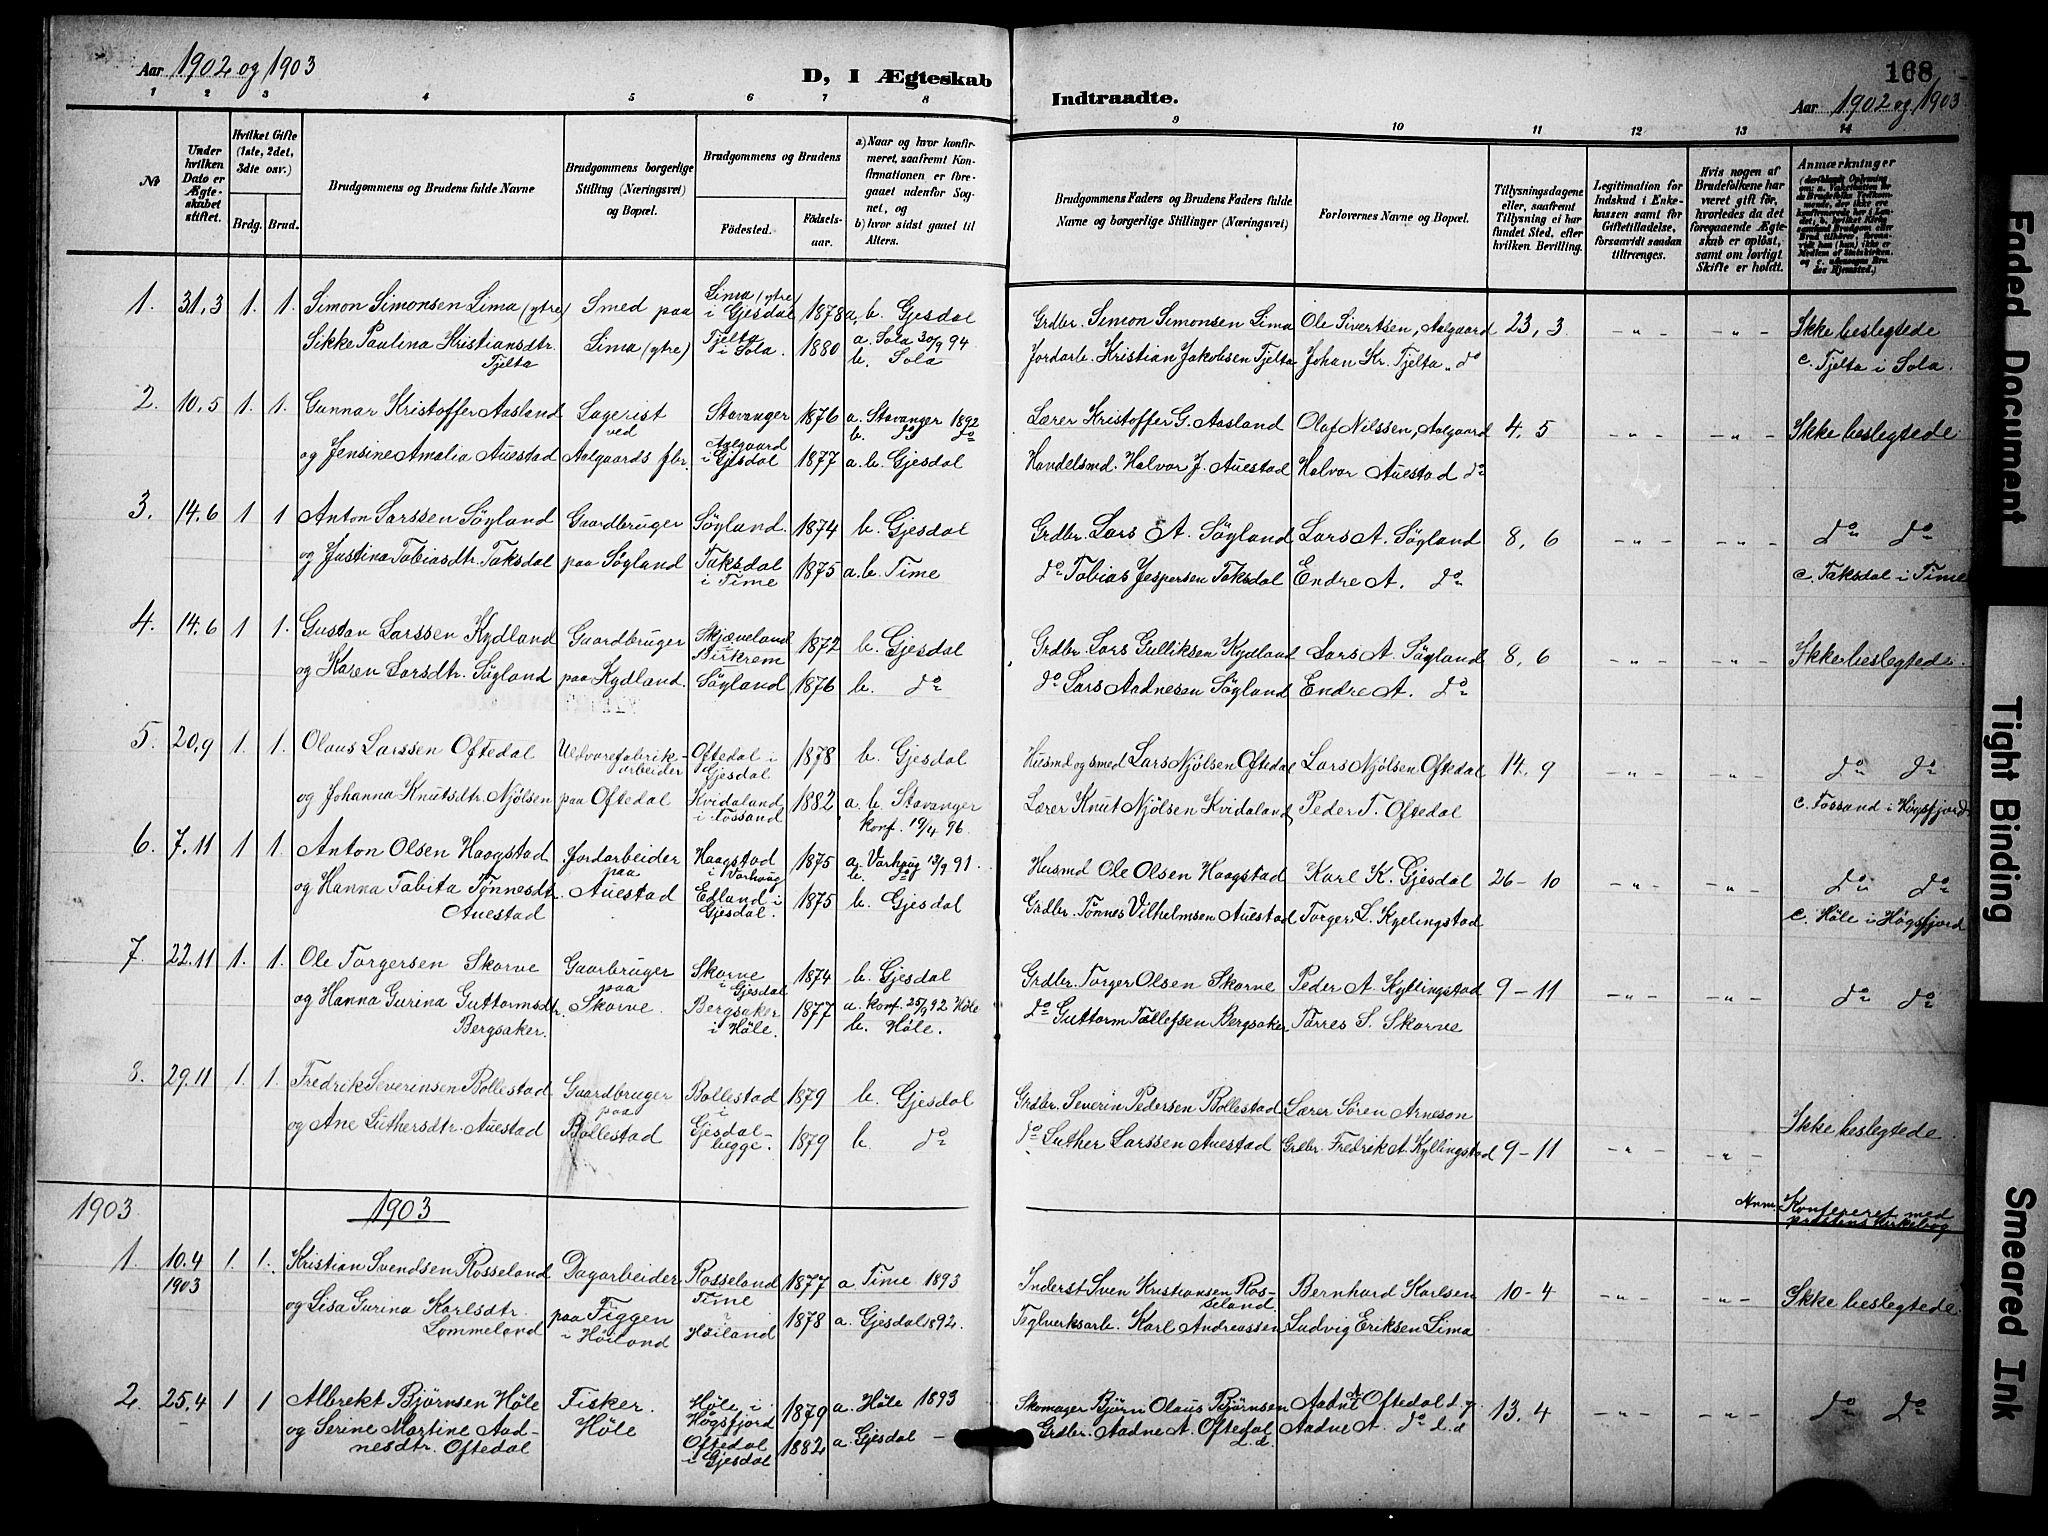 168
Aar 1902 og 1903
D, I Ægteskab
Indtraadte.
Aar 1902 og 1903
1 2 3 4 5 6 7 8 9 10 11 12 13 14
No
Under hvilken Dato er Ægteskabet stiftet.
Hvilket Gifte (1ste, 2det, 3die osv.)
Brdg. Brud.
Brudgommens og Brudens fulde Navne
Brudgommens borgerlige Stilling (Næringsvei) og Bopæl.
Brudgommens og Brudens
Födested.
Födselsaar.
a) Naar og hvor konfirmeret, saafremt Konfirmationen er foregaaet udenfor Sognet, og
b) hvor sidst gaaet til Alters.
Brudgommens Faders og Brudens Faders fulde Navne og borgerlige Stillinger (Næringsvei)
Forlovernes Navne og Bopæl.
Tillysningsdagene eller, saafremt Tillysning ei har fundet Sted, efter hvilken Bevilling.
Legitimation for Indskud i Enkekassen samt for Giftetilladelse, forsaavidt saadan tiltrænges.
Hvis nogen af Brudefolkene har været gift för, hvorledes da det foregaaende Ægteskab er oplöst, samt om lovligt Skifte er holdt.
Anmærkninger
1. 31,3 1. 1. Simon Simonsen Lima (ytre) Smed paa Lima (ytre) i Gjesdal 1878 a, b. Gjesdal Grdbr. Simon Simonsen Lima Ole Sivertsen, Aalgaard 23, 3. – „ – – „ – Ikke beslegtede
Sikke Paulina Kristiansdtr. Tjelta Lima (ytre) Tjelta i Sola. 1880 a. Sola 30/9 94 b. Sola Jordarb. Kristian Jakobsen Tjelta Johan Kr. Tjelta „ do c. Tjelta i Sola.
2. 10,5 1. 1. Gunnar Kristoffer Aasland Lagerist ved Stavanger 1876 a. Stavanger 1892 b. do do Lærer Kristoffer G. Aasland Olaf Nilssen, Aalgaard 4, 5 – „ – – „ – Ikke beslegtede
og Jensine Amalia Auestad Aalgaards fbr. Aalgaard i Gjesdal 1877 a. b. Gjesdal Handelsmd. Halvor J. Auestad Halvor Auestad do
3. 14,6 1 1 Anton Larssen Söyland Gaardbruger Söyland. 1874 b. Gjesdal Grdbr. Lars A. Söyland Lars A. Söyland 8, 6 – „ – – „ – do do
og Justina Tobiasdtr. Taksdal paa Söyland Taksdal i Time 1875 a. b. Time do Tobias Jespersen Taksdal Endre A. do c. Taksdal i Time
4. 14,6 1 1. Gustav Larssen Kydland Gaardbruger Skjæveland Birkrem 1872 b. Gjesdal Grdbr. Lars Gulliksen Kydland Lars A. Söyland 8, 6 – „ – – „ – Ikke beslegtede.
og Karen Larsdtr. Söyland paa Kydland. Söyland 1876 b. do do Lars Aadnesen Söyland Endre A. do
5. 20,9 1. 1. Olaus Larssen Oftedal Uldvarefabrikarbeider Oftedal i Gjesdal 1878 b. Gjesdal Husmd og smed Lars Njölsen Oftedal Lars Njölsen Oftedal 14, 9 – „ – – „ – do do
og Johanna Knutsdtr. Njölsen paa Oftedal Kvidaland i Fossand 1882 a. b. Stavanger konf. 19/4 96. Lærer Knut Njölsen Kvidaland Peder T. Oftedal c. Fossand i Högsfjord
6. 7,11 1 1. Anton Olsen Haagstad Jordarbeider paa Haagstad i Varhaug 1875 a. Varhaug 13/9 91. b. do Husmd Ole Olsen Haagstad Karl K. Gjesdal 26–10 – „ – – „ – do do
og Hanna Tabita Tönnesdtr. Auestad Auestad Edland i Gjesdal. 1875 b. Gjesdal Grdbr. Tönnes Vilhelmsen Auestad Torger L. Kyllingstad c. Höle i Högsfjord
7. 22.11 1. 1. Ole Torgersen Skorve Gaarbruger paa Skorve i Gjesdal 1874 b. Gjesdal Grdbr. Torger Olsen Skorve Peder A. Kyllingstad 9–11 – „ – – „ – do do
og Hanna Gurina Guttormsdtr. Bergsaker. Skorve. Bergsaker i Höle. 1877 a. konf. 25/9 92 Höle b. Höle. do Guttorm Tollefsen Bergsaker Torres S. Skorve
8. 29.11 1. 1. Fredrik Severinsen Bollestad Gaardbruger paa Bollestad i 1879 b. Gjesdal Grdbr. Severin Pedersen Bollestad Lærer Sören Arneson
og Ane Luthersdtr. Auestad Bollestad Gjesdal begge. 1879 b. do do Luther Larssen Auestad Grdbr. Fredrik A. Kyllingstad 9–11 – „ – – „ – Ikke beslegtede
1903 1903 Anm. Konfereret med prestens kirkebog
1. 10.4 1903 1. 1. Kristian Svendsen Rosseland Dagarbeider Rosseland Time 1877 a. Time 1893 Inderst Sven Kristiansen Rosseland Bernhard Karlsen 10–4 – „ – – „ – Ikke beslegtede.
og Lisa Gurina Karlsdtr. Lommeland paa Figgen i Höiland Höiland 1878 a. Gjesdal 1892. Teglverksarb. Karl Andreassen Ludvig Eriksen Lima
2. 25.4 1 1 Albrekt Björnsen Höle Fisker. Höle i Högsfjord 1879 a. Höle 1893 Skomager Björn Olaus Björnsen Aadne A. Oftedal d. y. 13.4 – „ – – „ – do do
og Serine Martine Aadnesdtr. Oftedal Höle Oftedal i Gjesdal 1882 a. Gjesdal – Grdbr. Aadne A. Oftedal d.d. Aadne A. do d. d
Faded Document
Tight Binding
Smeared Ink